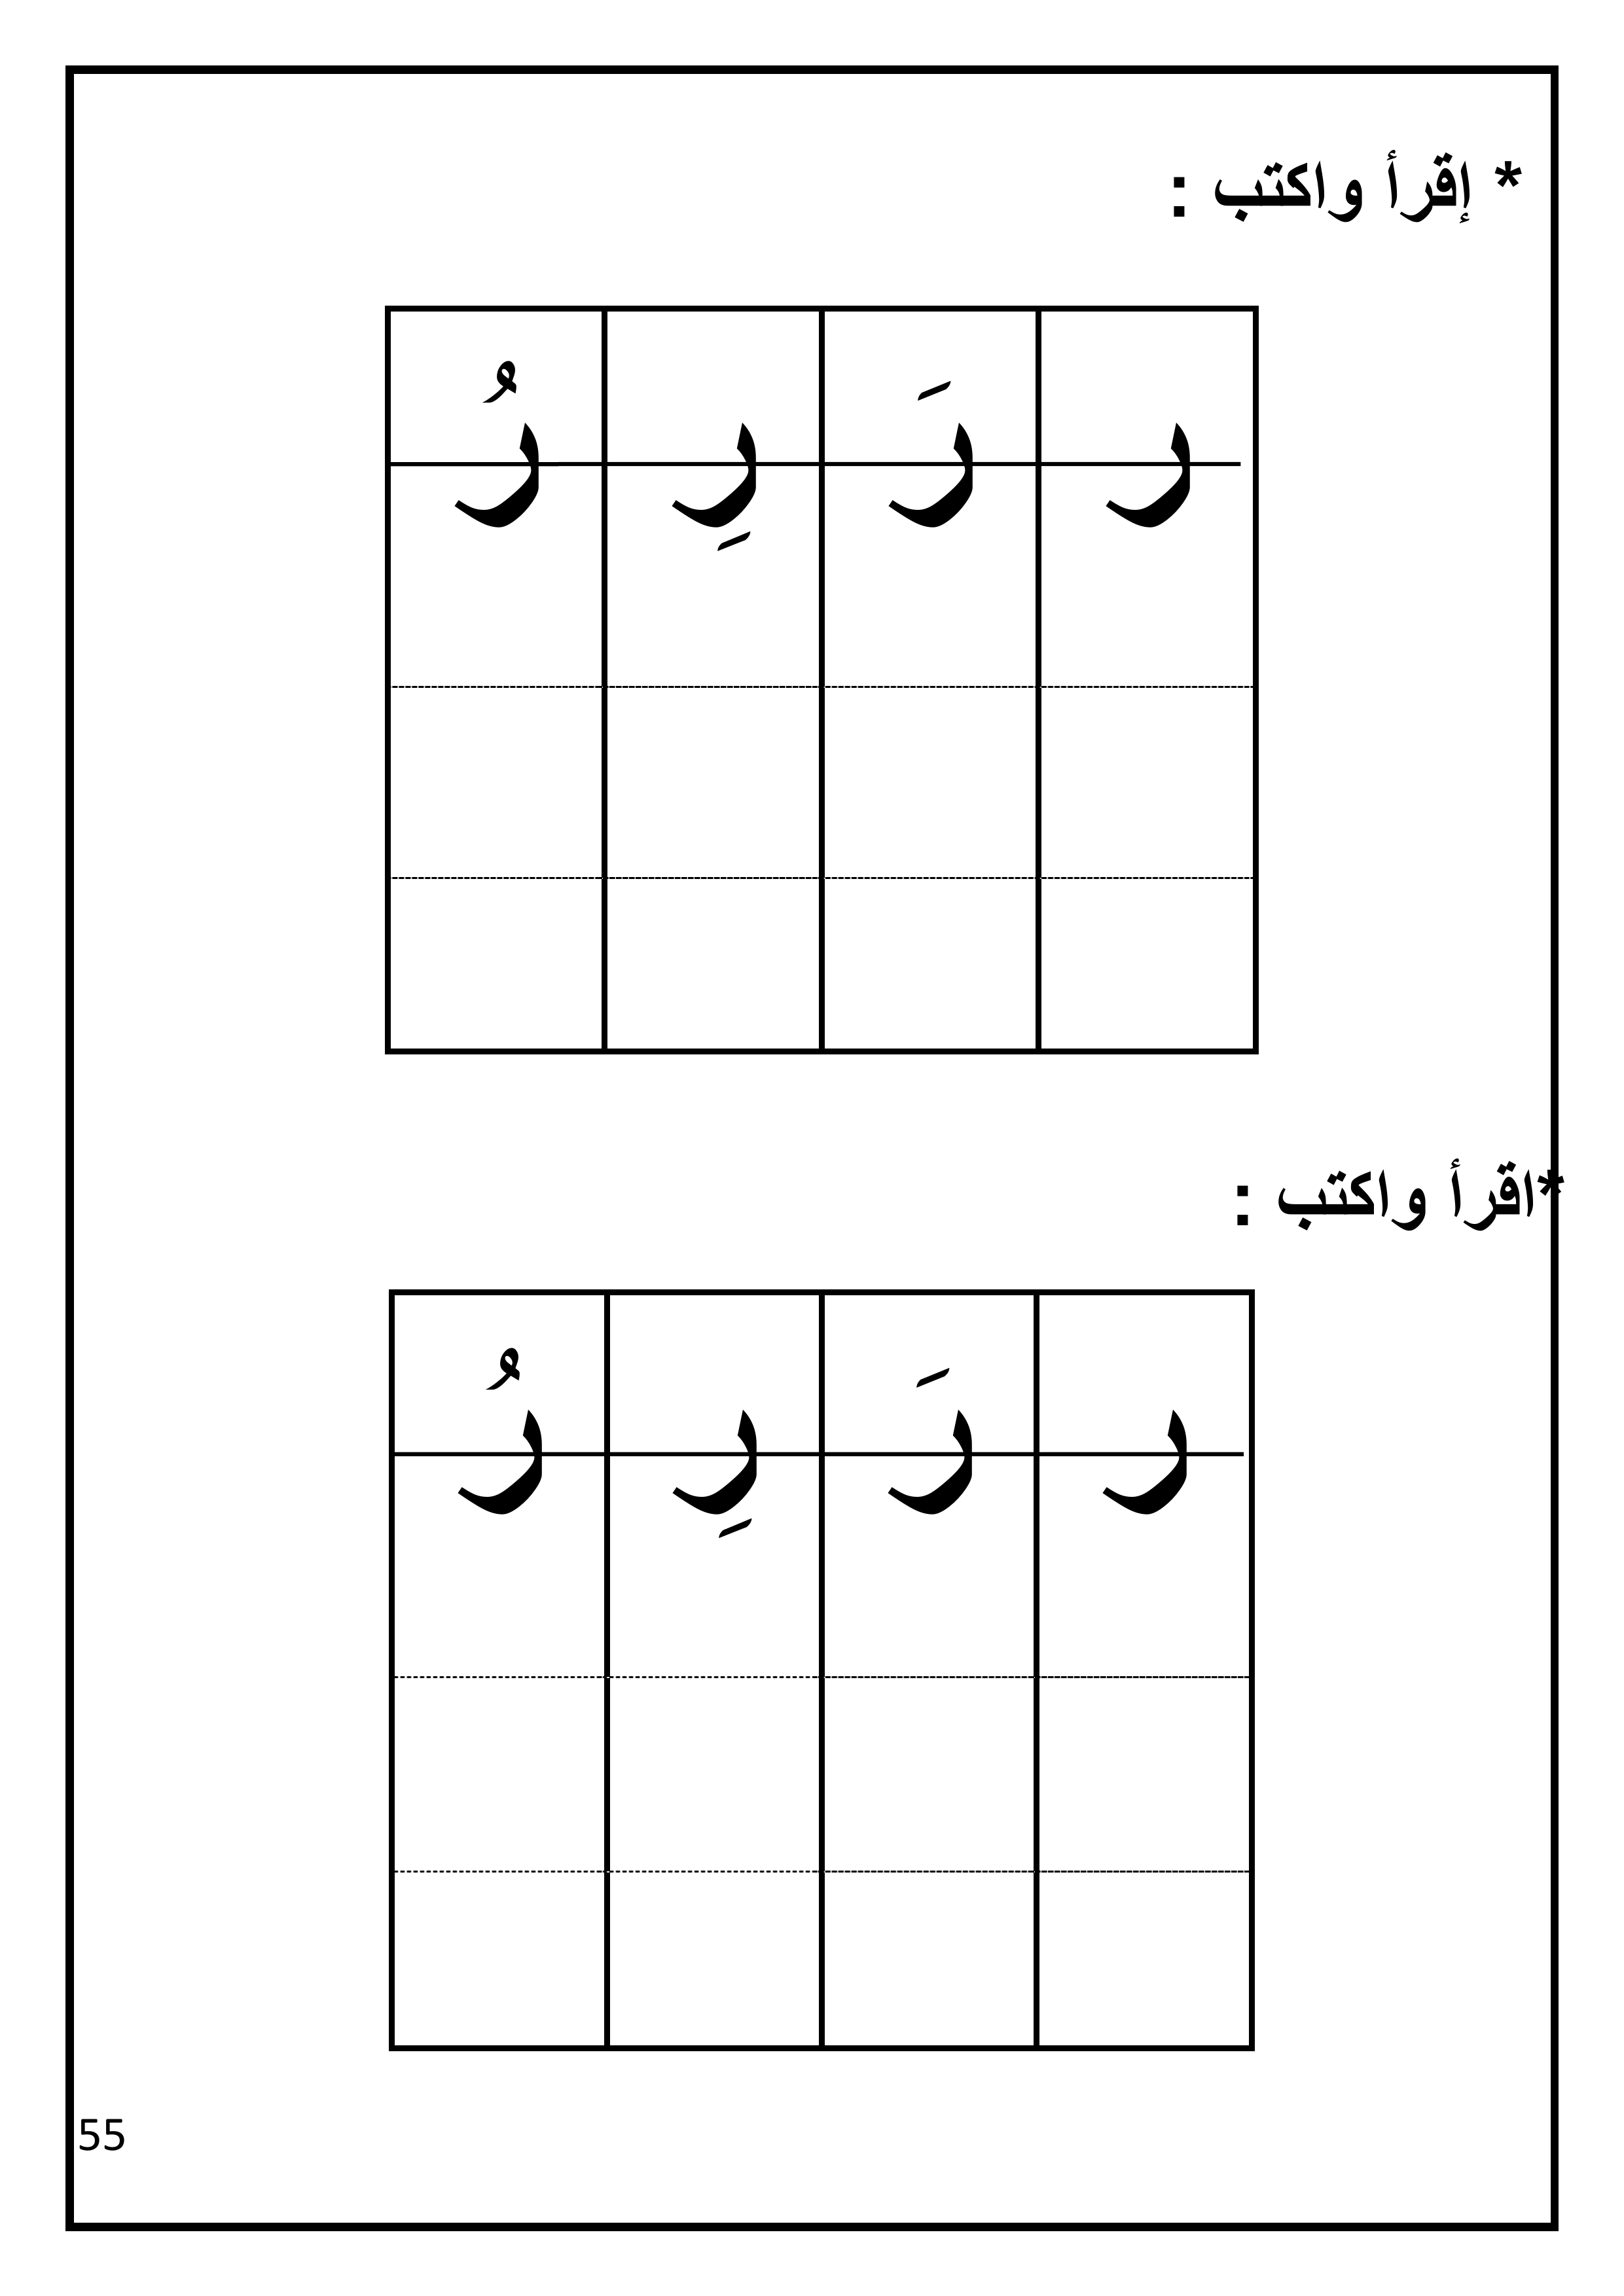 * إقرأ واكتب :
ر رَ رِ رُ
*اقرأ واكتب :
ر رَ رِ رُ
55